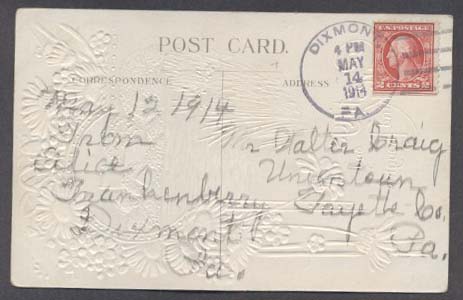 POST CARD.
CORRESPONDENCE
ADDRESS
DIXMON
4 PM
MAY
14
1914
PA.
U.S. POSTAGE
2 CENTS 2
May 12 1914
From
Alice
Frankenberry
Dixmont
Pa.
Mr Walter Craig
Uniontown
Fayette Co.
Pa.